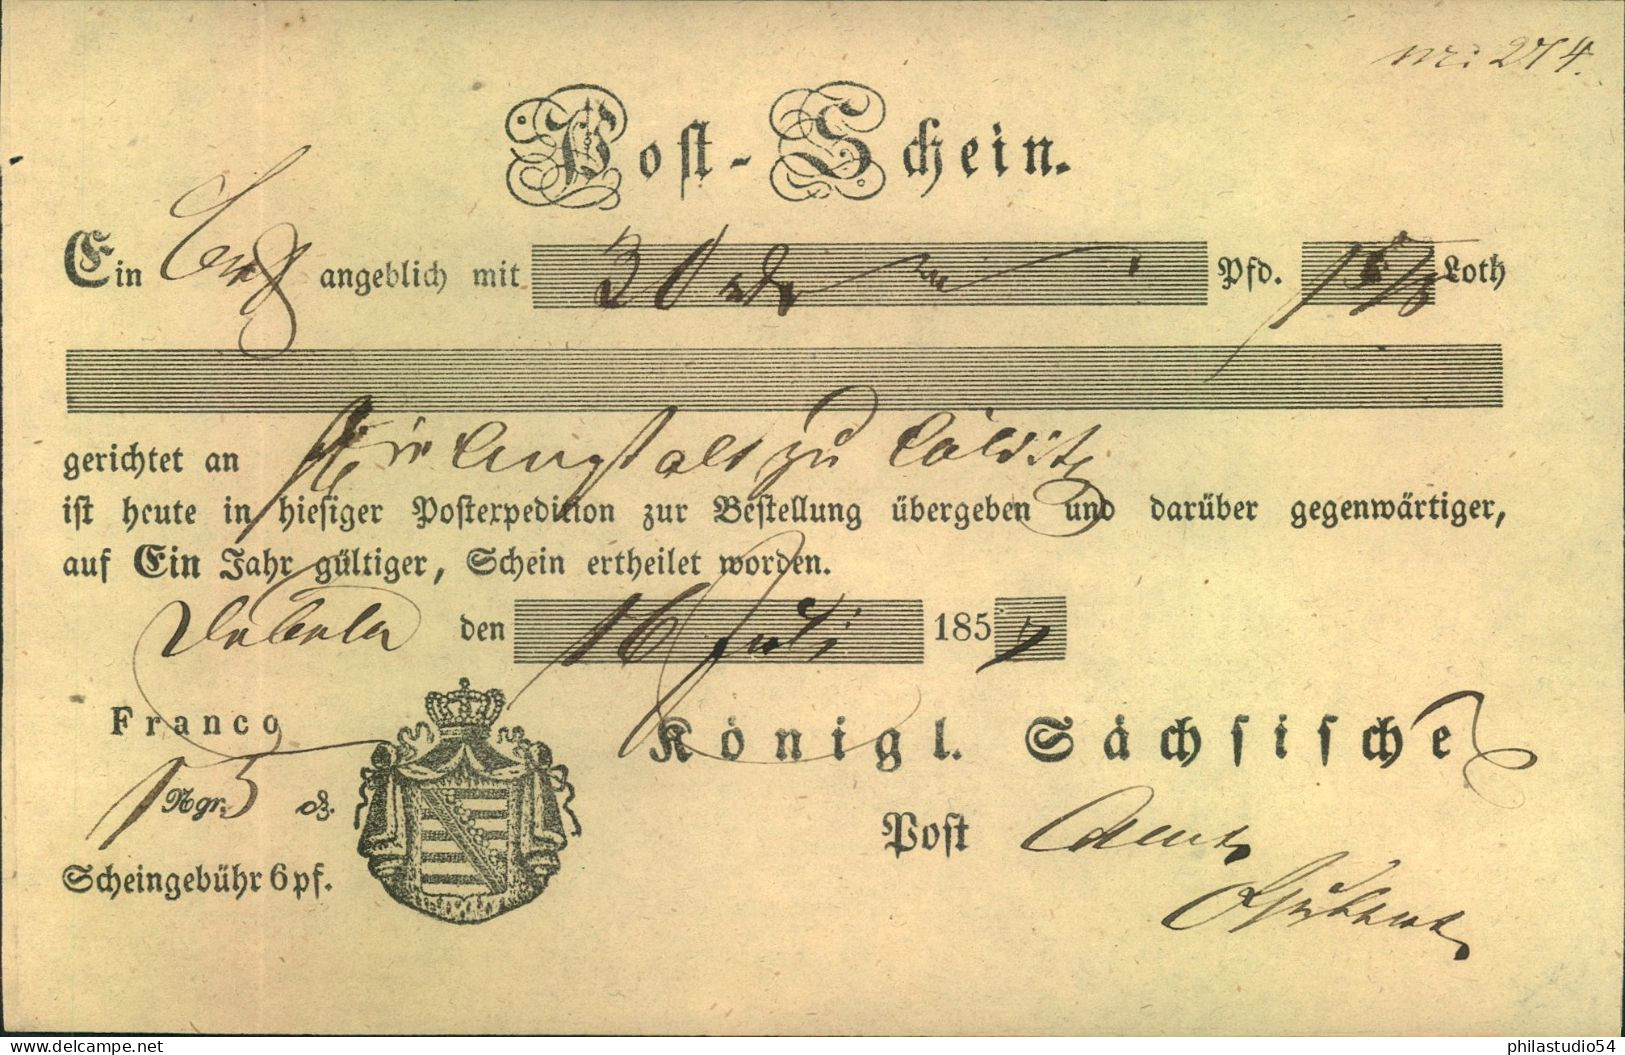 Nr: 274.
Post-Schein.
Ein angeblich mit 30 Pfd. Loth
gerichtet an zu Colditz
ist heute in hiesiger Postexpedition zur Bestellung übergeben und darüber gegenwärtiger,
auf Ein Jahr gültiger, Schein ertheilet worden.
Döbeln den 16 Juli 1857
Franco
1 Ngr. 5 ₰.
Königl. Sächsische
Post
Scheingebühr 6 pf.
www.delcampe.net
philastudio54